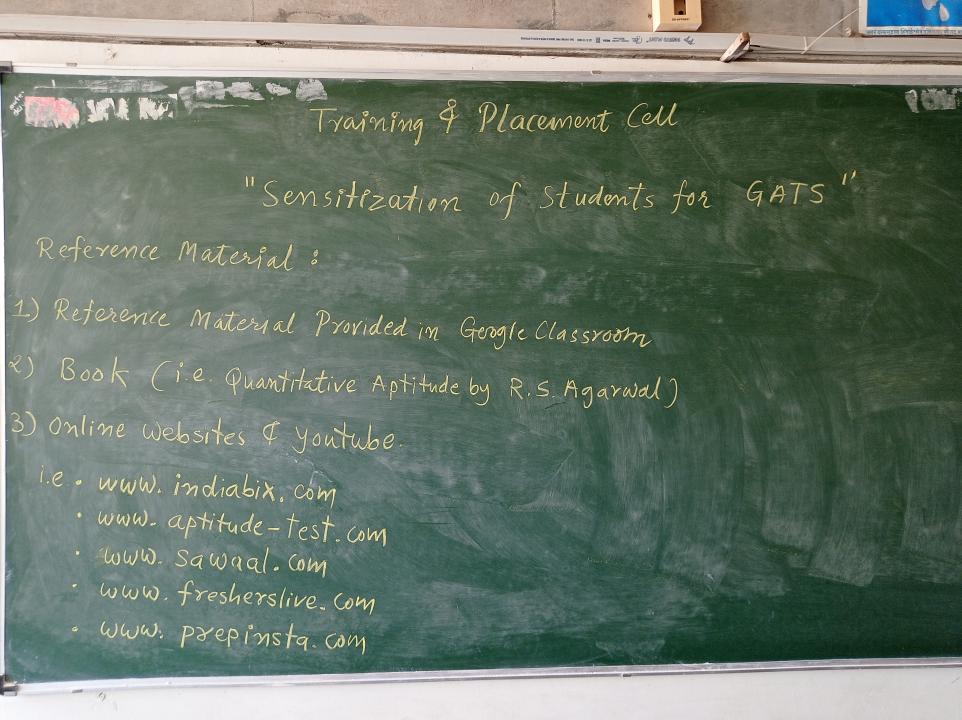 Training & Placement Cell
"Sensitization of Students for GATS"
Reference Material :
1) Reference Material Provided in Google Classroom
2) Book (i.e. Quantitative Aptitude by R.S. Agarwal)
3) Online websites & youtube.
i.e • www.indiabix.com
• www.aptitude-test.com
• www.sawaal.com
• www.fresherslive.com
• www.prepinsta.com